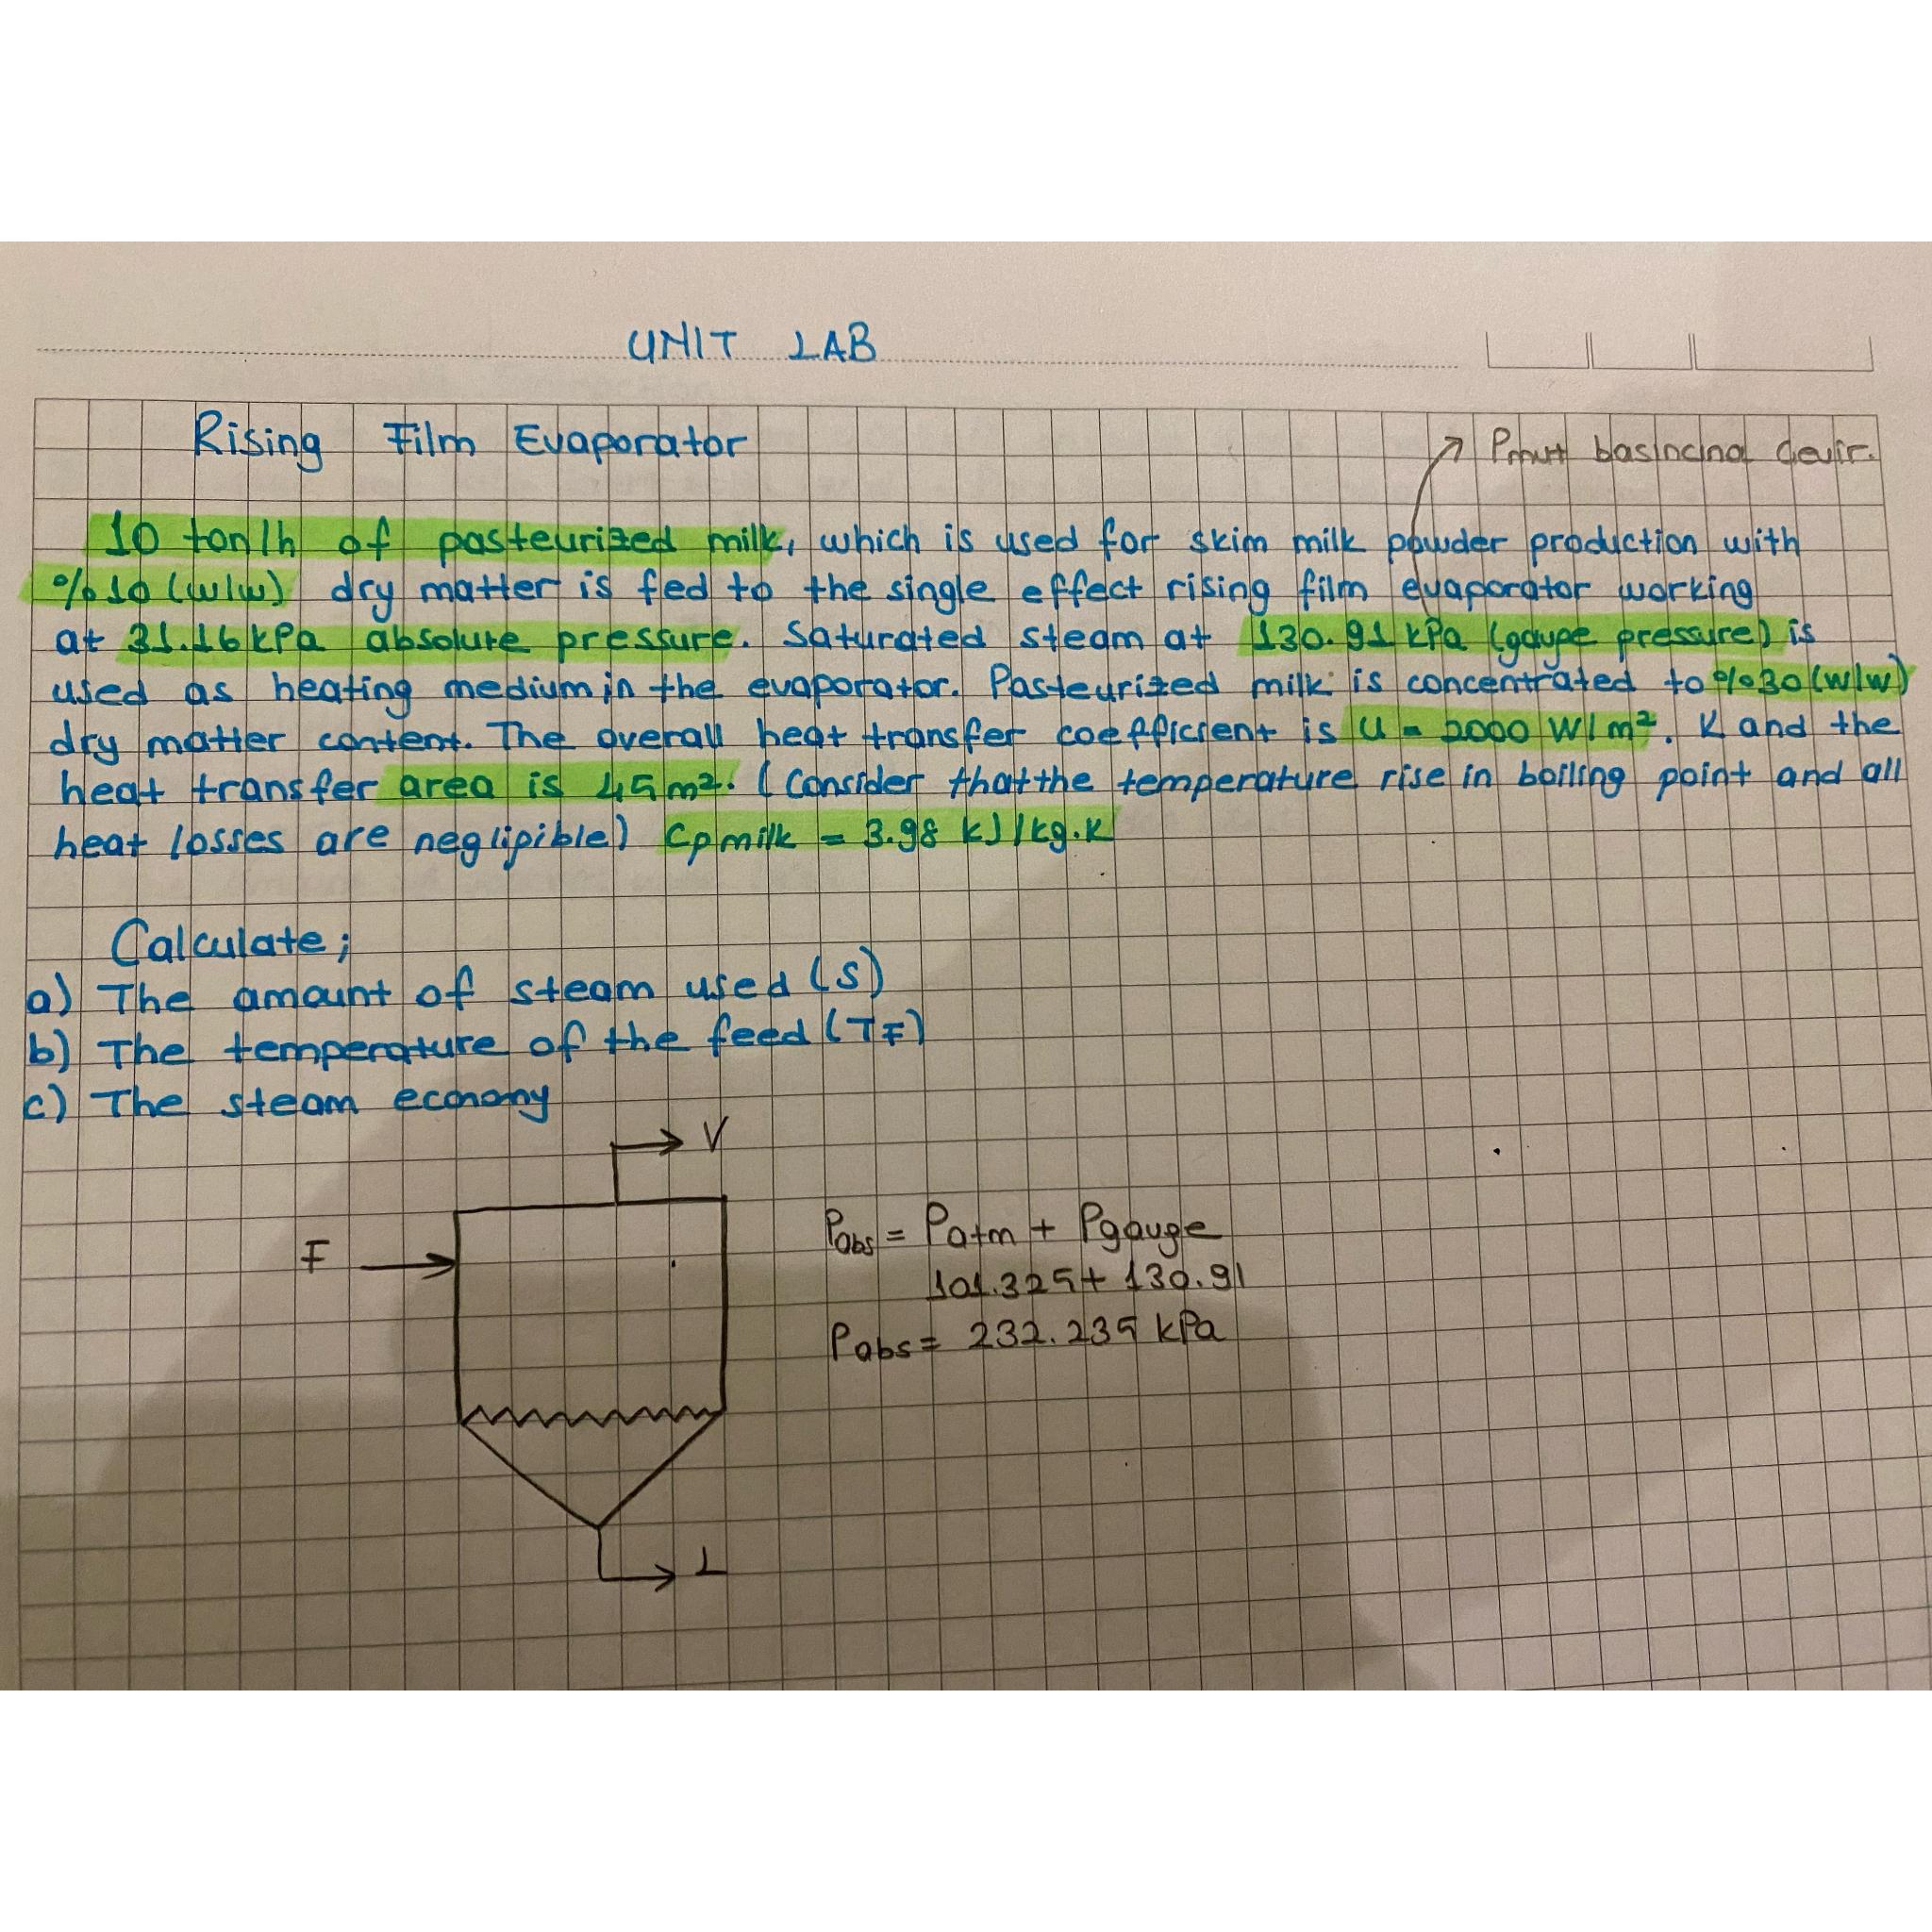 UNIT LAB
Rising Film Evaporator
Pmut basıncına çevir.
10 ton/h of pasteurized milk, which is used for skim milk powder production with
%10 (w/w) dry matter is fed to the single effect rising film evaporator working
at 31.16 kPa absolute pressure. Saturated steam at 130.91 kPa (gauge pressure) is
used as heating medium in the evaporator. Pasteurized milk is concentrated to %30 (w/w)
dry matter content. The overall heat transfer coefficient is U = 2000 W/m². K and the
heat transfer area is 45 m². (Consider that the temperature rise in boiling point and all
heat losses are negligible) Cpmilk = 3.98 kJ/kg.K
Calculate;
a) The amount of steam used (S)
b) The temperature of the feed (TF)
c) The steam economy
V
F
Pabs = Patm + Pgauge
101.325 + 130.91
Pabs = 232.235 kPa
L